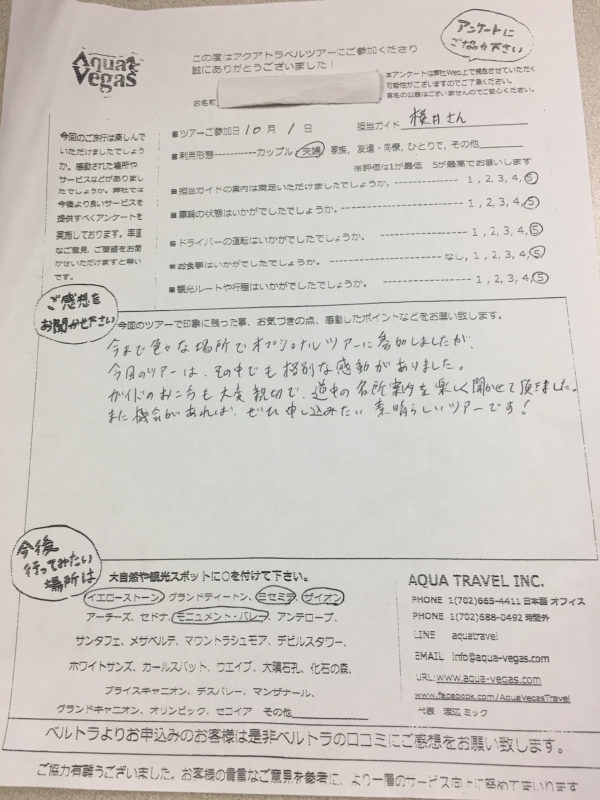 Aqua Vegas
この度はアクアトラベルツアーにご参加くださり
誠にありがとうございました!
アンケートに
ご協力下さい
本アンケートは弊社Web上で掲載させていただく
可能性がございますのでご了承ください。
実名の公表はございませんのでご安心ください。
お名前
今回のご旅行は楽しんで
いただけましたでしょう
か。感動された場所や
サービスなどがありまし
たでしょうか。弊社では
今後より良いサービスを
提供すべくアンケートを
実施しております。率直
なご意見、ご要望をお聞
かせいただけますと幸い
です。
■ツアーご参加日 10 月 1 日 担当ガイド 桜井さん
■利用形態-----------カップル、夫婦、家族、友達・同僚、ひとりで、その他
※評価は1が最低 5が最高でお願いします
■担当ガイドの案内は満足いただけましたでしょうか。---------------- 1 , 2, 3, 4, 5
■車輌の状態はいかがでしたでしょうか。---------------- 1 , 2, 3, 4, 5
■ドライバーの運転はいかがでしたでしょうか。---------------- 1 , 2, 3, 4, 5
■お食事はいかがでしたでしょうか。---------------- なし, 1, 2, 3, 4, 5
■観光ルートや行程はいかがでしたでしょうか。---------------- 1 , 2, 3, 4, 5
ご感想を
お聞かせ下さい
今回のツアーで印象に張った事、お気づきの点、感動したポイントなどをお願い致します。
今まで色々な場所でオプショナルツアーに参加しましたが、
今回のツアーは、その中でも格別な感動がありました。
ガイドのお二方も大変親切で、道中の名所案内を楽しく聞かせて頂きました。
また機会があれば、ぜひ申し込みたい素晴らしいツアーです!
今後
行ってみたい
場所は
大自然や観光スポットに○を付けて下さい。
イエローストーン、グランドティートン、ヨセミテ、ザイオン
アーチーズ、セドナ、モニュメント・バレー、アンテロープ、
サンタフェ、メサベルデ、マウントラシュモア、デビルスタワー、
ホワイトサンズ、カールスバット、ウエイブ、大隕石孔、化石の森、
ブライスキャニオン、デスバレー、マンザナール、
グランドキャニオン、オリンピック、セコイア その他
AQUA TRAVEL INC.
PHONE 1(702)665-4411 日本語 オフィス
PHONE 1(702)688-0492 時間外
LINE aquatravel
EMAIL info@aqua-vegas.com
URL: www.aqua-vegas.com
www.facebook.com/AquaVegasTravel
代表 渡辺 ミック
ベルトラよりお申込みのお客様は是非ベルトラの口コミにご感想をお願い致します。
ご協力有難うございました。お客様の貴重なご意見を参考に、より一層のサービス向上に努めてまいります